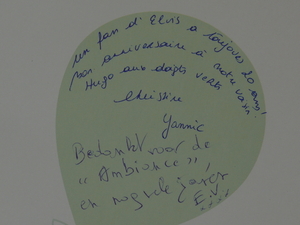 un fan d'Elvis a toujours 20 ans!
Mon anniversaire à notre
Hugo aux doigts verts
Christine
Yannic
Bedankt voor de
"Ambiance"
en nog vele jaren
E.V.